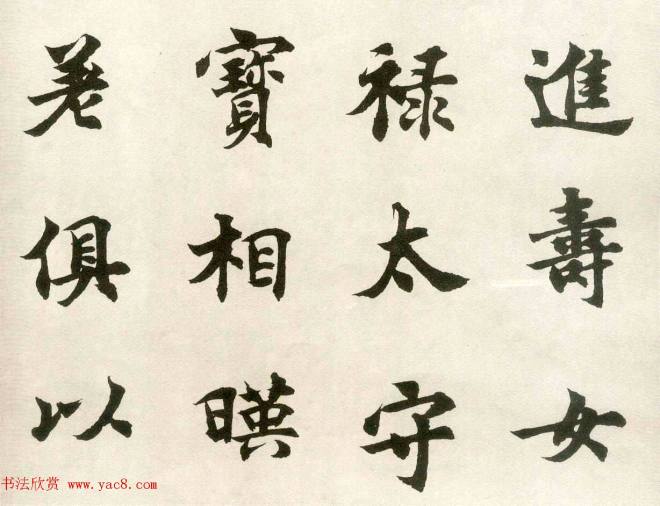 進壽女
禄太守
寶相暎
俱以
书法欣赏 www.yac8.com